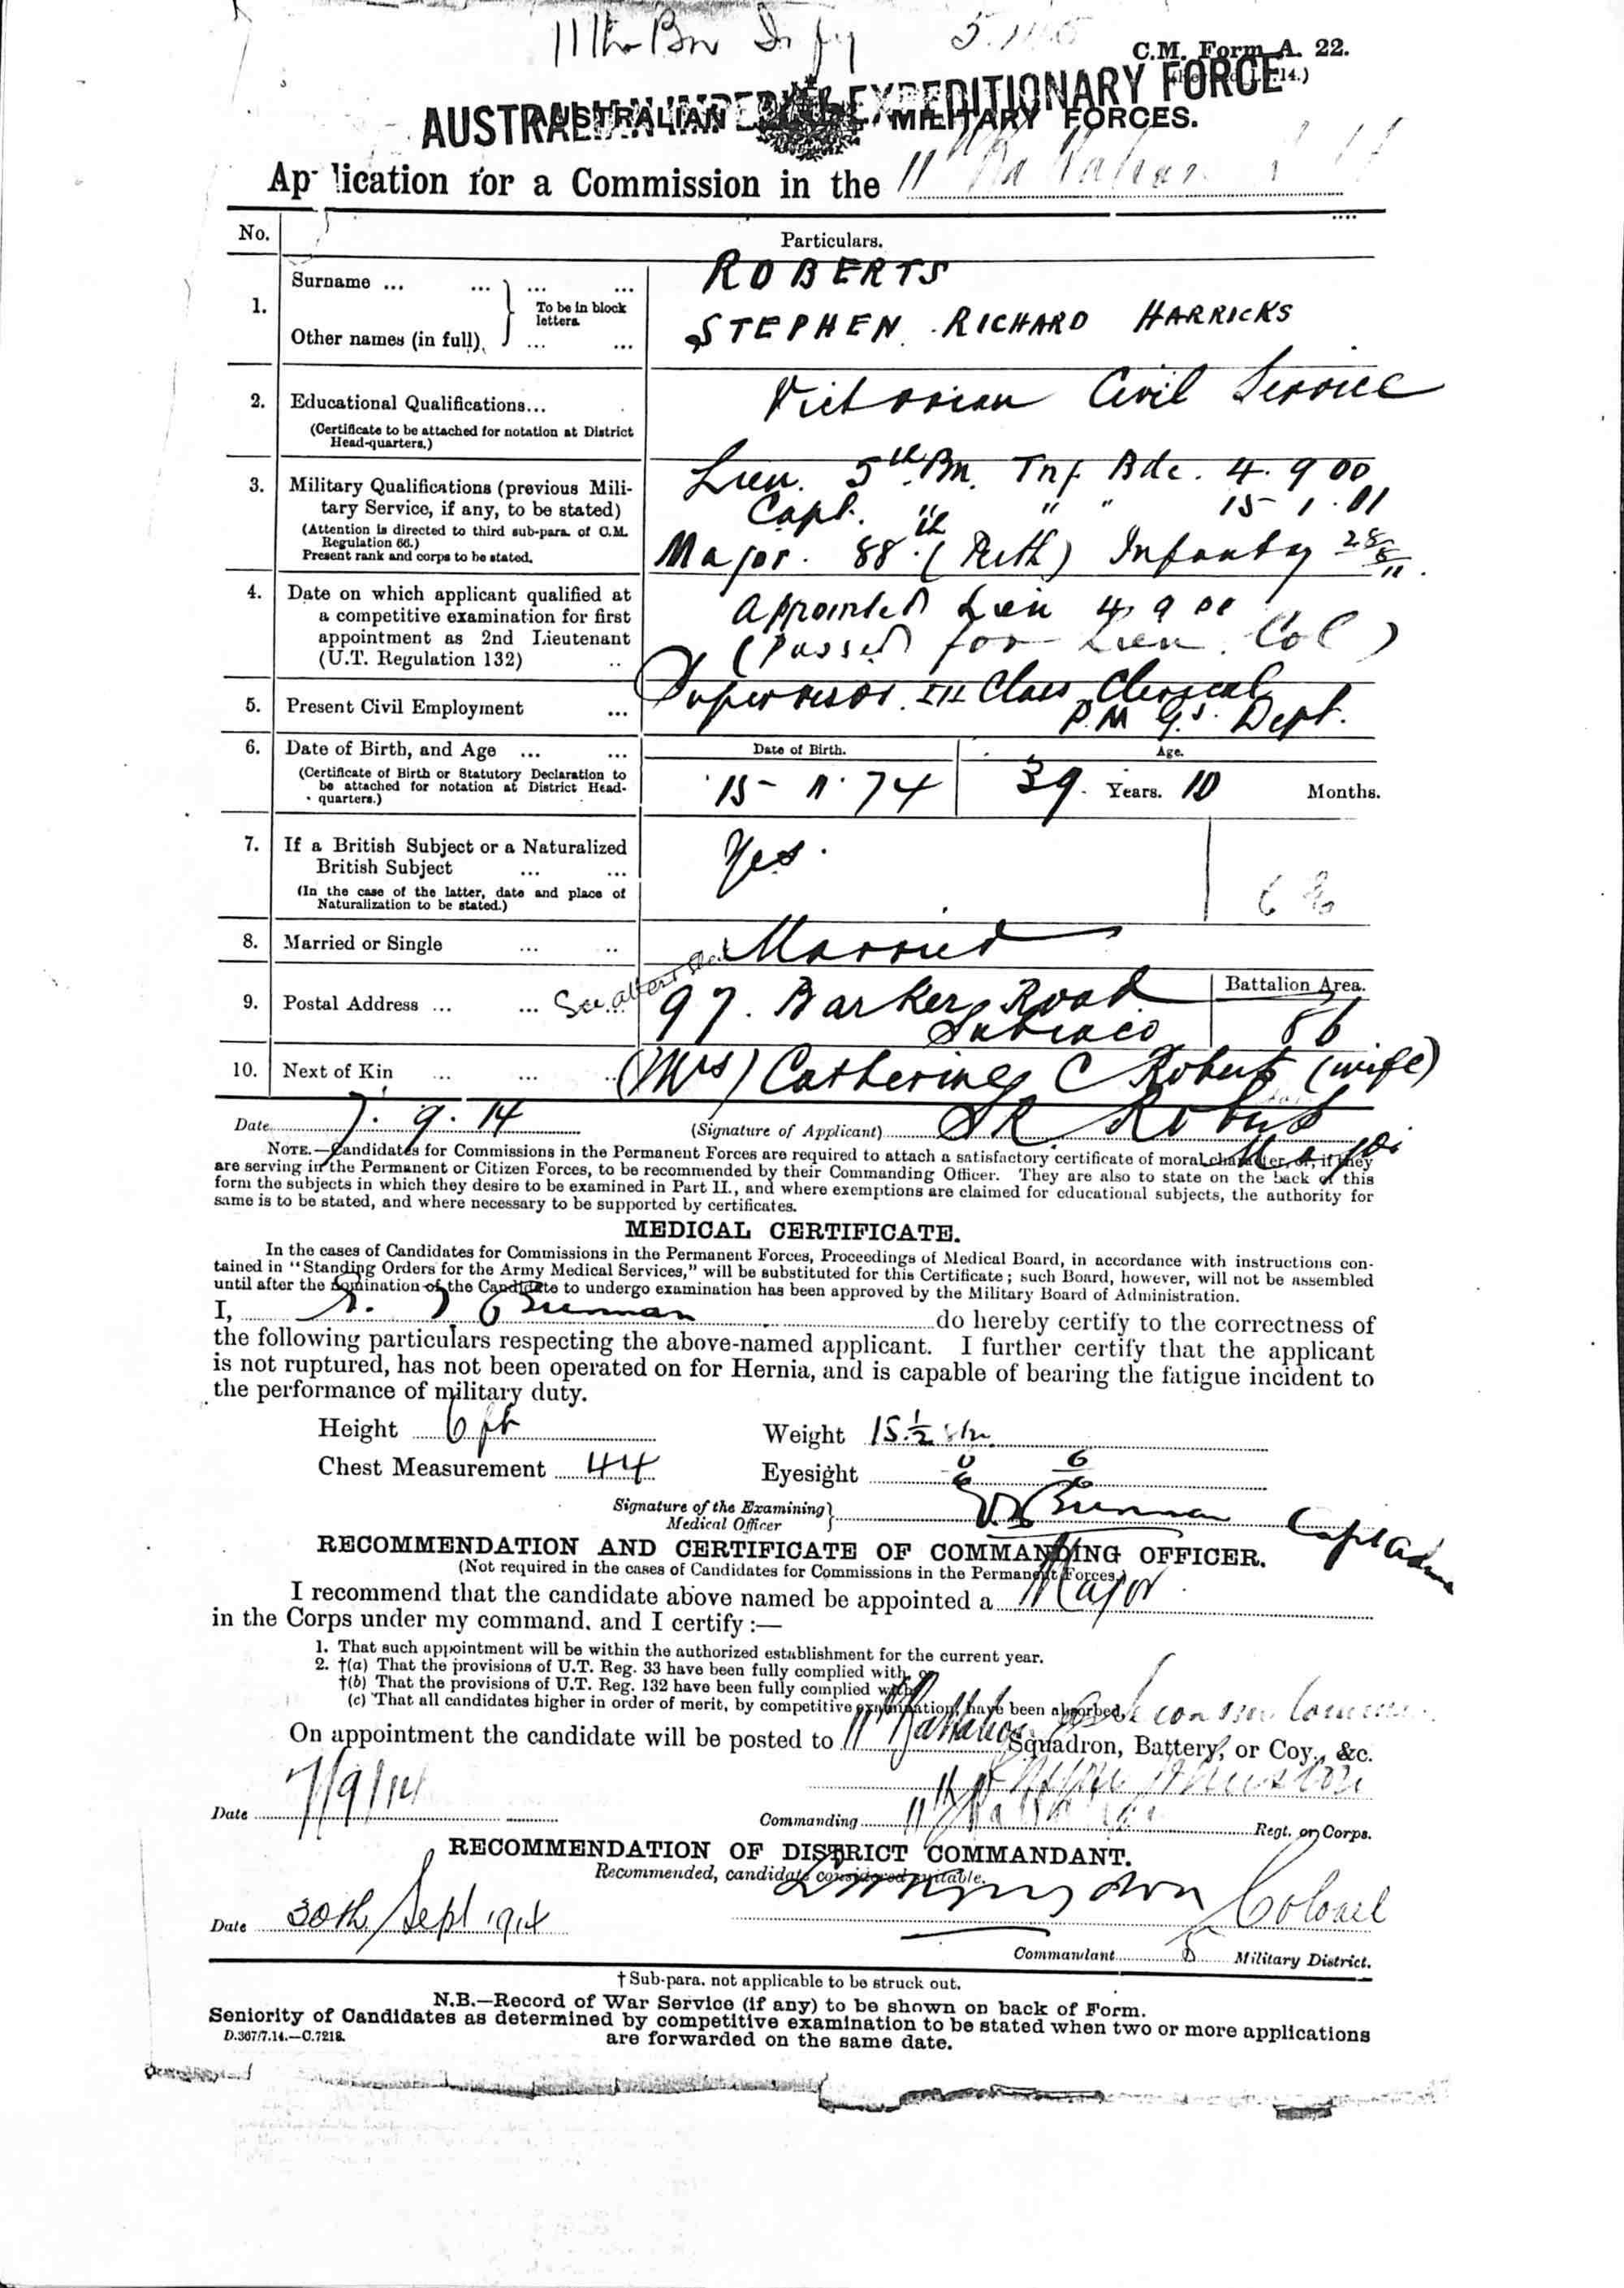 11th Bn Infy
C.M. Form A. 22.
AUSTRALIAN IMPERIAL EXPEDITIONARY FORCE
AUSTRALIAN MILITARY FORCES.
Application for a Commission in the 11th Battalion
No. Particulars.
1. Surname ... ... ... ... ROBERTS
To be in block letters.
Other names (in full) ... ... STEPHEN RICHARD HARRICKS
2. Educational Qualifications... Victorian Civil Service
(Certificate to be attached for notation at District
Head-quarters.)
3. Military Qualifications (previous Mili-
tary Service, if any, to be stated)
(Attention is directed to third sub-para. of C.M.
Regulation 66.)
Present rank and corps to be stated.
Lieu. 5th Bn. Inf Bde. 4. 9 00
Capt. " " " 15 1. 01
Major. 88th (Perth) Infantry 28/8/11.
4. Date on which applicant qualified at
a competitive examination for first
appointment as 2nd Lieutenant
(U.T. Regulation 132) ..
Appointed Lieu 4 9 00
(Passed for Lieu. Col)
5. Present Civil Employment ... Supervisor. III Class Clerical
P.M G's. Dept.
6. Date of Birth, and Age ... ...
(Certificate of Birth or Statutory Declaration to
be attached for notation at District Head-
quarters.)
Date of Birth. Age.
15- 11. 74 39. Years. 10 Months.
7. If a British Subject or a Naturalized
British Subject ... ...
(In the case of the latter, date and place of
Naturalization to be stated.)
Yes.
8. Married or Single ... .. Married
9. Postal Address ... ... See 97. Barker Road
Subiaco
Battalion Area.
86
10. Next of Kin ... ... .. (Mrs) Catherine C Roberts (wife)
Date 7. 9. 14 (Signature of Applicant) S R Roberts
Major
NOTE.—Candidates for Commissions in the Permanent Forces are required to attach a satisfactory certificate of moral character, or, if they
are serving in the Permanent or Citizen Forces, to be recommended by their Commanding Officer. They are also to state on the back of this
form the subjects in which they desire to be examined in Part II., and where exemptions are claimed for educational subjects, the authority for
same is to be stated, and where necessary to be supported by certificates.
MEDICAL CERTIFICATE.
In the cases of Candidates for Commissions in the Permanent Forces, Proceedings of Medical Board, in accordance with instructions con-
tained in "Standing Orders for the Army Medical Services," will be substituted for this Certificate; such Board, however, will not be assembled
until after the nomination of the Candidate to undergo examination has been approved by the Military Board of Administration.
I, Brennan do hereby certify to the correctness of
the following particulars respecting the above-named applicant. I further certify that the applicant
is not ruptured, has not been operated on for Hernia, and is capable of bearing the fatigue incident to
the performance of military duty.
Height 6 ft Weight 15.½ stn.
Chest Measurement 44 Eyesight 6/6 6/6
Signature of the Examining
Medical Officer
Brennan Capt
RECOMMENDATION AND CERTIFICATE OF COMMANDING OFFICER.
(Not required in the cases of Candidates for Commissions in the Permanent Forces.)
I recommend that the candidate above named be appointed a Major
in the Corps under my command, and I certify :—
1. That such appointment will be within the authorized establishment for the current year.
2. †(a) That the provisions of U.T. Reg. 33 have been fully complied with, or
†(b) That the provisions of U.T. Reg. 132 have been fully complied with
(c) That all candidates higher in order of merit, by competitive examination, have been absorbed.
On appointment the candidate will be posted to 11th Battalion as Second in Comm Squadron, Battery, or Coy., &c.
Date 7/9/14 Commanding 11th Battalion Regt. or Corps.
RECOMMENDATION OF DISTRICT COMMANDANT.
Recommended, candidate considered suitable.
Date 30th Sept 1914 Colonel
Commandant 5 Military District.
† Sub-para. not applicable to be struck out.
N.B.—Record of War Service (if any) to be shown on back of Form.
Seniority of Candidates as determined by competitive examination to be stated when two or more applications
are forwarded on the same date.
D.367/7.14.—C.7218.